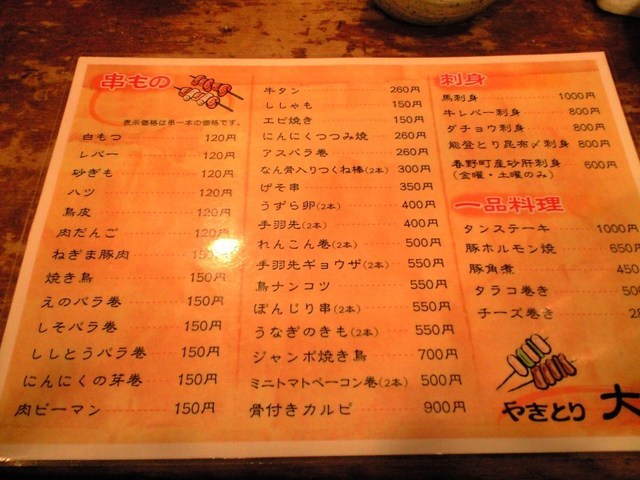 串もの
表示価格は串一本の価格です。
白もつ 120円
レバー 120円
砂ぎも 120円
ハツ 120円
鳥皮 120円
肉だんご 120円
ねぎま豚肉
焼き鳥 150円
えのバラ巻 150円
しそバラ巻 150円
ししとうバラ巻 150円
にんにくの芽巻 150円
肉ピーマン 150円
牛タン 260円
ししゃも 150円
エビ焼き 150円
にんにくつつみ焼 260円
アスパラ巻 260円
なん骨入りつくね棒(2本) 300円
げそ串 350円
うずら卵(2本) 400円
手羽先(2本) 400円
れんこん巻(2本) 500円
手羽先ギョウザ(2本) 550円
鳥ナンコツ 550円
ぼんじり串(2本) 550円
うなぎのきも(2本) 550円
ジャンボ焼き鳥 700円
ミニトマトベーコン巻(2本) 500円
骨付きカルビ 900円
刺身
馬刺身 1000円
牛レバー刺身 800円
ダチョウ刺身 800円
能登とり昆布〆刺身 800円
春野町産砂肝刺身 600円
(金曜・土曜のみ)
一品料理
タンステーキ 1000円
豚ホルモン焼 650円
豚角煮 450
タラコ巻き 500
チーズ巻き
やきとり 大